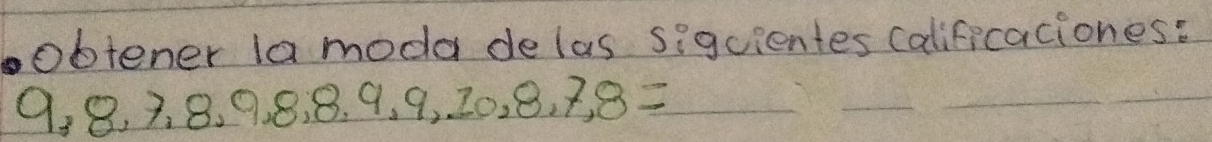 •obtener la moda de las sigcientes calificaciones:
9,8,7,8,9,8,8,9,9,10,8,7,8=